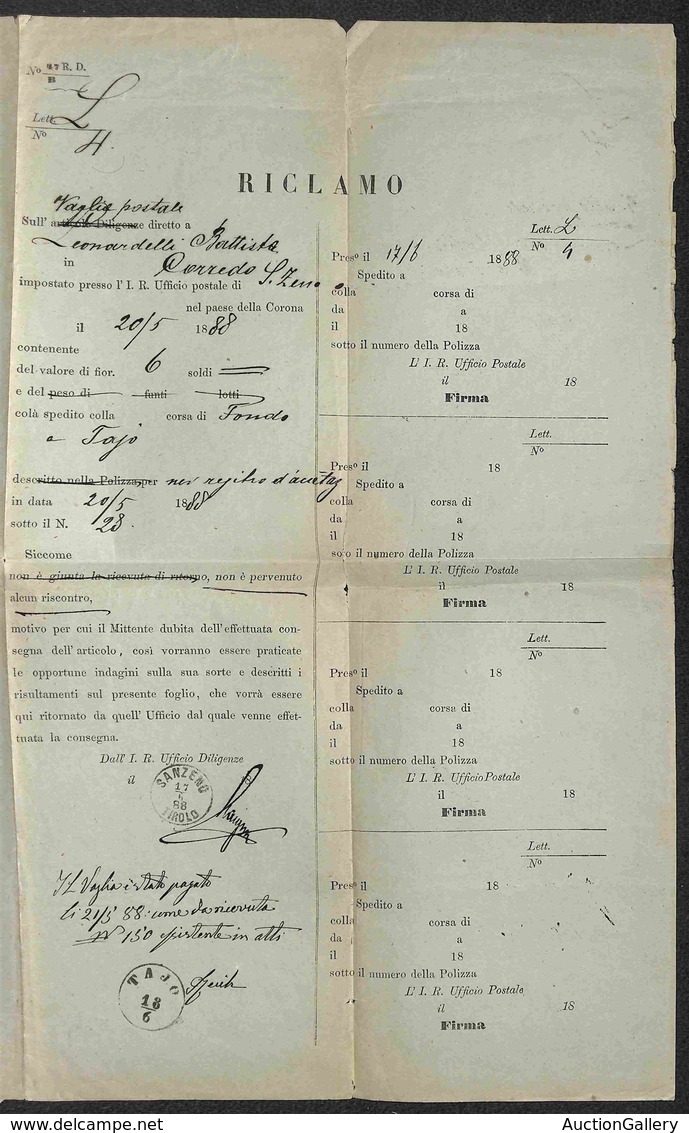 No 27 R. D.
B
Lett. L
No 4
RICLAMO
Vaglia postale
Sull' articolo Diligenze diretto a
Leonardelli Battista
in Corredo
impostato presso l' I. R. Ufficio postale di S. Zeno
nel paese della Corona
il 20/5 1888
contenente
del valore di fior. 6 soldi
e del peso di funti lotti
colà spedito colla corsa di Fondo
a Tajo
descritto nella Polizza per nel registro d'accettaz
in data 20/5 1888
sotto il N. 28
Siccome
non è giunta la ricevuta di ritorno, non è pervenuto
alcun riscontro,
motivo per cui il Mittente dubita dell'effettuata con-
segna dell'articolo, così vorranno essere praticate
le opportune indagini sulla sua sorte e descritti i
risultamenti sul presente foglio, che vorrà essere
qui ritornato da quell' Ufficio dal quale venne effet-
tuata la consegna.
Dall' I. R. Ufficio Diligenze
il
SANZENO
17
88
TIROLO
Il Vaglia è stato pagato
li 21/5 88 come da ricevuta
No 150 esistente in atti
TAJO
18
6
Lett. L
No 4
Preso il 17/6 1888
Spedito a
colla corsa di
da a
il 18
sotto il numero della Polizza
L' I. R. Ufficio Postale
il 18
Firma
Lett.
No
Preso il 18
Spedito a
colla corsa di
da a
il 18
sotto il numero della Polizza
L' I. R. Ufficio Postale
il 18
Firma
Preso il 18
Spedito a
colla corsa di
da a
il 18
sotto il numero della Polizza
L' I. R. Ufficio Postale
il 18
Firma
Lett.
No
Preso il 18
Spedito a
colla corsa di
da a
il 18
sotto il numero della Polizza
L' I. R. Ufficio Postale
il 18
Firma
AuctionGallery